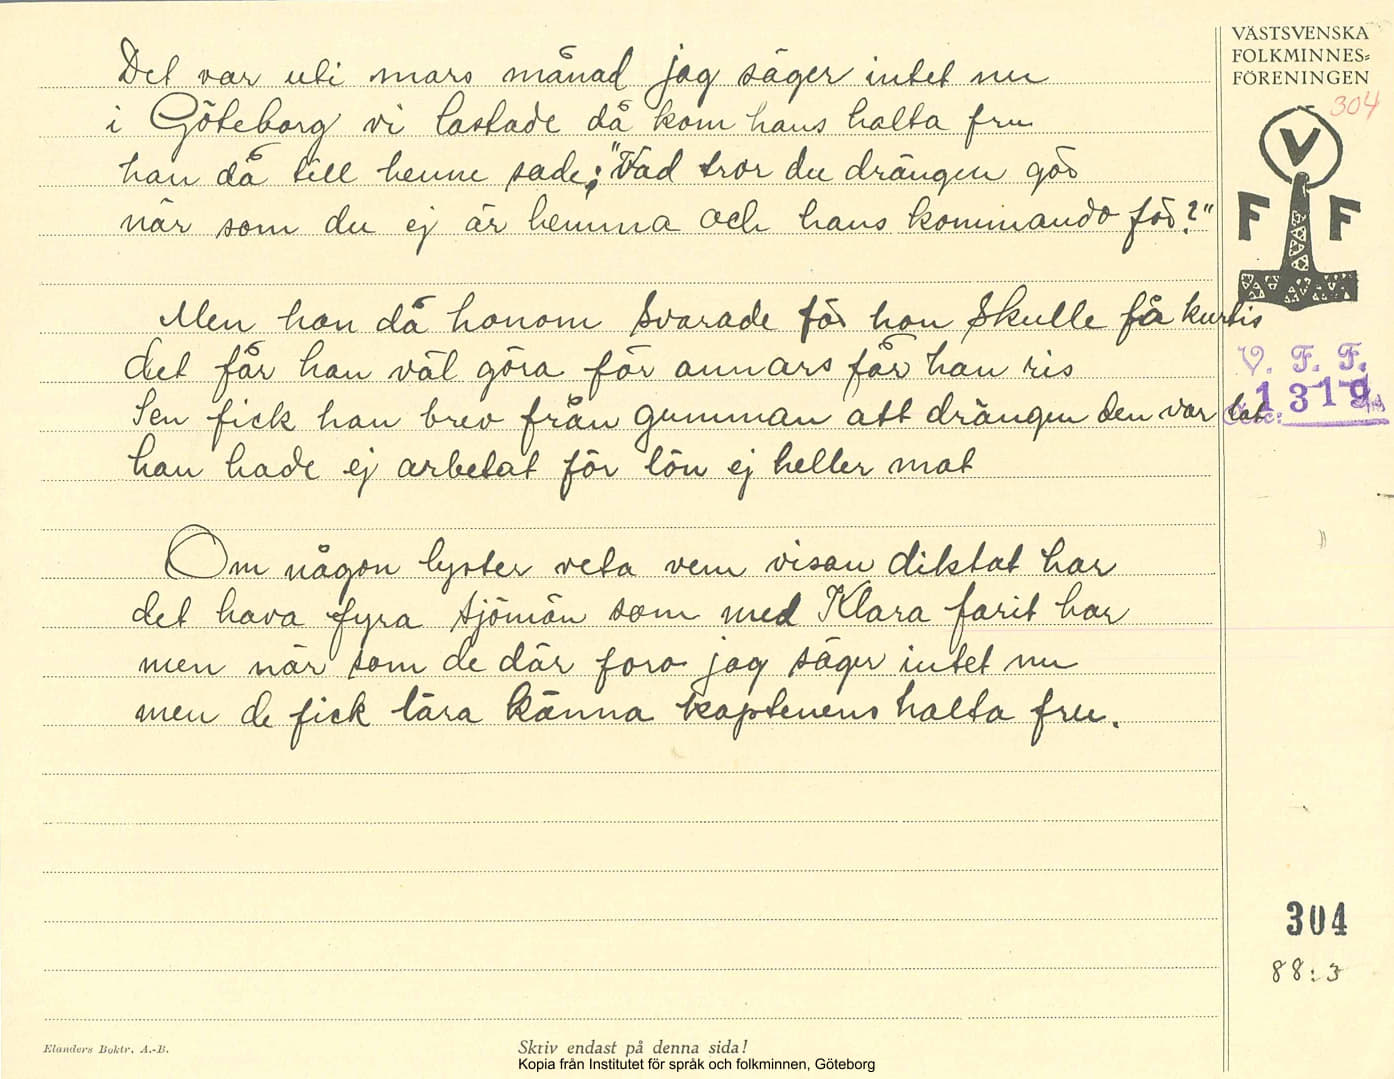 VÄSTSVENSKA
FOLKMINNES-
FÖRENINGEN
304
V
F F
V. F. F.
1319
Acc:
Det var uti mars månad jag säger intet nu
i Göteborg vi lastade då kom hans halta fru
han då till henne sade: "Vad tror du drängen gör
när som du ej är hemma och hans kommando för?"
Men hon då honom svarade för hon skulle få kurtis
det får han väl göra för annars får han ris
Sen fick han brev från gumman att drängen den var lat
han hade ej arbetat för lön ej heller mat
Om någon lyster veta vem visan diktat har
det hava fyra sjömän som med Klara farit har
men när som de där foro jag säger intet nu
men de fick lära känna kaptenens halta fru.
304
88:3
Elanders Boktr. A.-B.
Skriv endast på denna sida!
Kopia från Institutet för språk och folkminnen, Göteborg